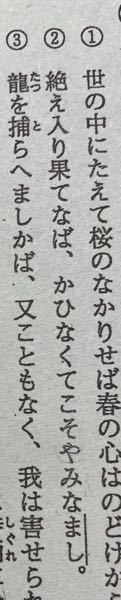 ① 世の中にたえて桜のなかりせば春の心はのどけか
② 絶え入り果てなば、かひなくてこそやみなまし。
③ 龍を捕らへましかば、又こともなく、我は害せられ
たつ
と
しぐれ